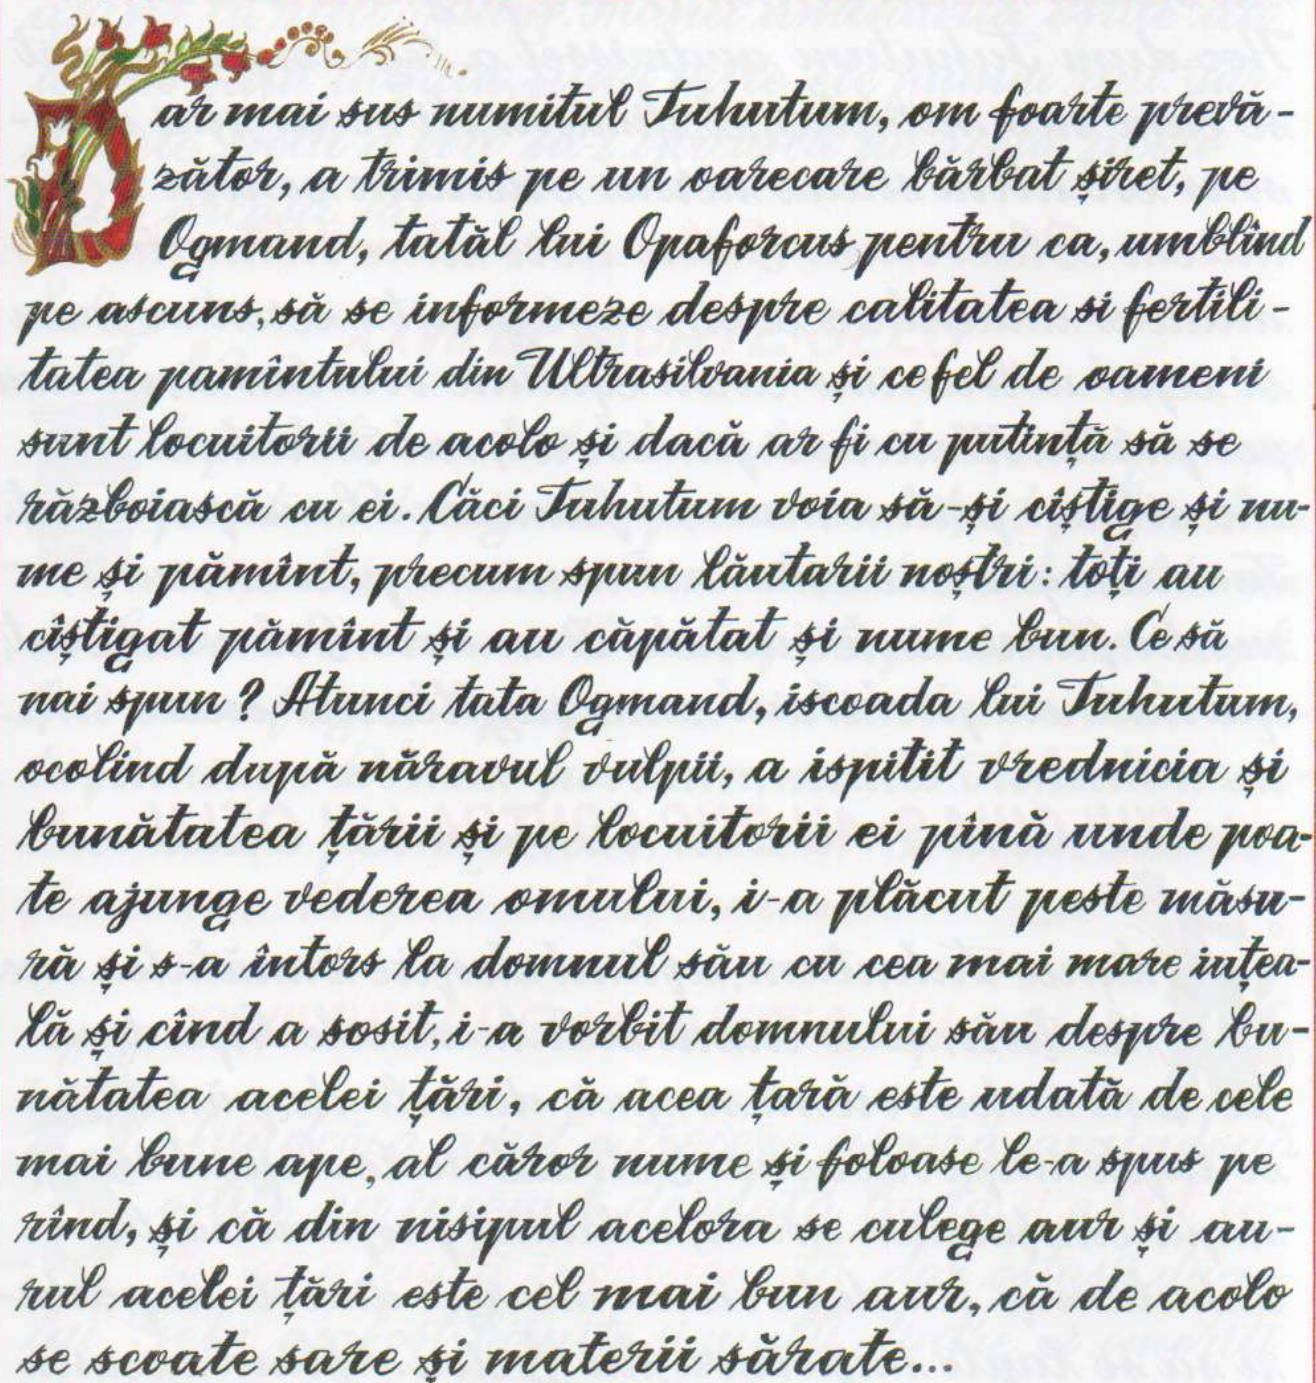 Dar mai sus numitul Tuhutum, om foarte prevă-
zător, a trimis pe un oarecare bărbat șiret, pe
Ogmand, tatăl lui Opaforcus pentru ca, umblînd
pe ascuns, să se informeze despre calitatea si fertili-
tatea pamîntului din Ultrasilvania și ce fel de oameni
sunt locuitorii de acolo și dacă ar fi cu putință să se
războiască cu ei. Căci Tuhutum voia să-și cîștige și nu-
me și pămînt, precum spun lăutarii noștri: toți au
cîștigat pămînt și au căpătat și nume bun. Ce să
nai spun? Atunci tata Ogmand, iscoada lui Tuhutum,
ocolind după năravul vulpii, a ispitit vrednicia și
bunătatea țării și pe locuitorii ei pînă unde poa-
te ajunge vederea omului, i-a plăcut peste măsu-
ră și s-a întors la domnul său cu cea mai mare iuțea-
lă și cînd a sosit, i-a vorbit domnului său despre bu-
nătatea acelei țări, că acea țară este udată de cele
mai bune ape, al căror nume și foloase le-a spus pe
rînd, și că din nisipul acelora se culege aur și au-
rul acelei țări este cel mai bun aur, că de acolo
se scoate sare și materii sărate...